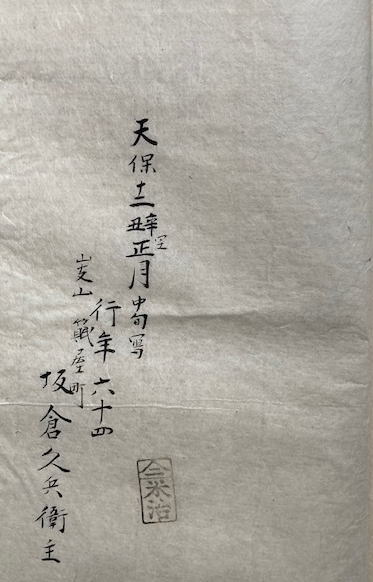 天保十二辛丑正月中旬写
行年六十四
岐山 籏屋町
坂倉久兵衛主
米治